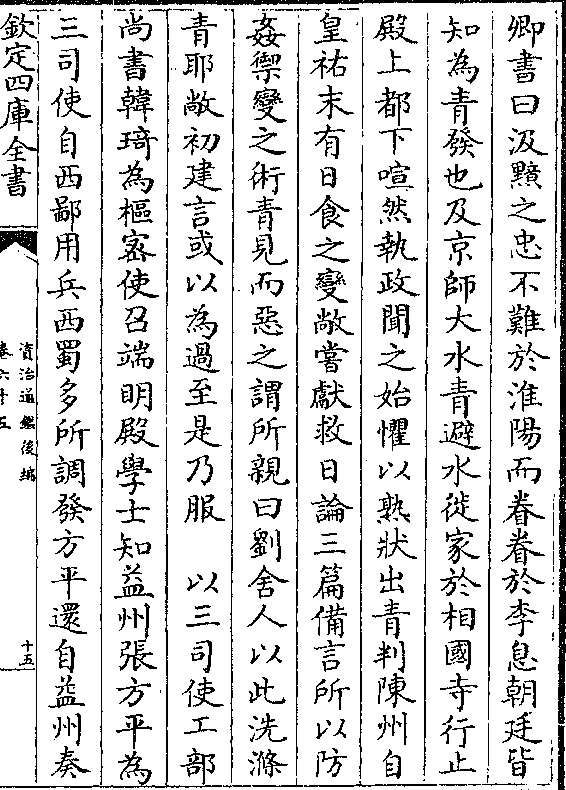 卿書曰汲黯之忠不難於淮陽而眷眷於李息朝廷皆
知為青發也及京師大水青避水徙家於相國寺行止
殿上都下喧然執政聞之始懼以熟狀出青判陳州自
皇祐末有日食之變敞嘗獻救日論三篇備言所以防
姦禦變之術青見而惡之謂所親曰劉舍人以此洗滌
青耶敞初建言或以為過至是乃服　以三司使工部
尚書韓琦為樞密使召端明殿學士知益州張方平為
三司使自西鄙用兵西蜀多所調發方平還自益州奏
欽定四庫全書
資治通鑑後編
卷六十五
十五